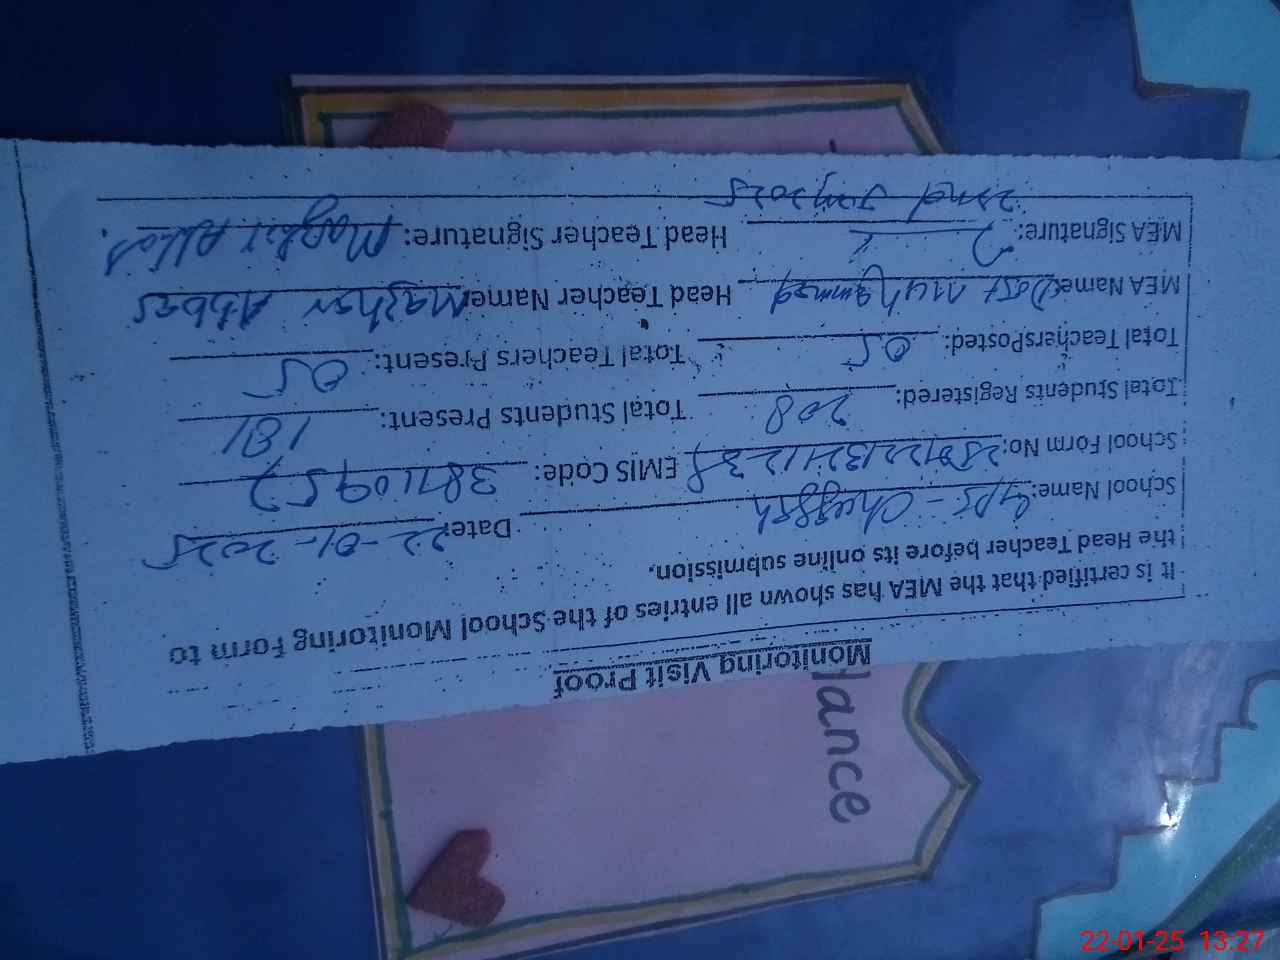 Monitoring Visit Proof
It is certified that the MEA has shown all entries of the School Monitoring Form to
the Head Teacher before its online submission.
School Name: GPS - Date: 22-01-2025
School Form No: EMIS Code: 38110957
Total Students Registered: 208 Total Students Present: 181
Total TeachersPosted: 05 Total Teachers Present: 05
MEA Name: Dost Muhammad Head Teacher Name: Mazhar Abbas
MEA Signature: Head Teacher Signature: Mazhar Abbas.
22nd Jan, 2025
dance
22-01-25 13:27